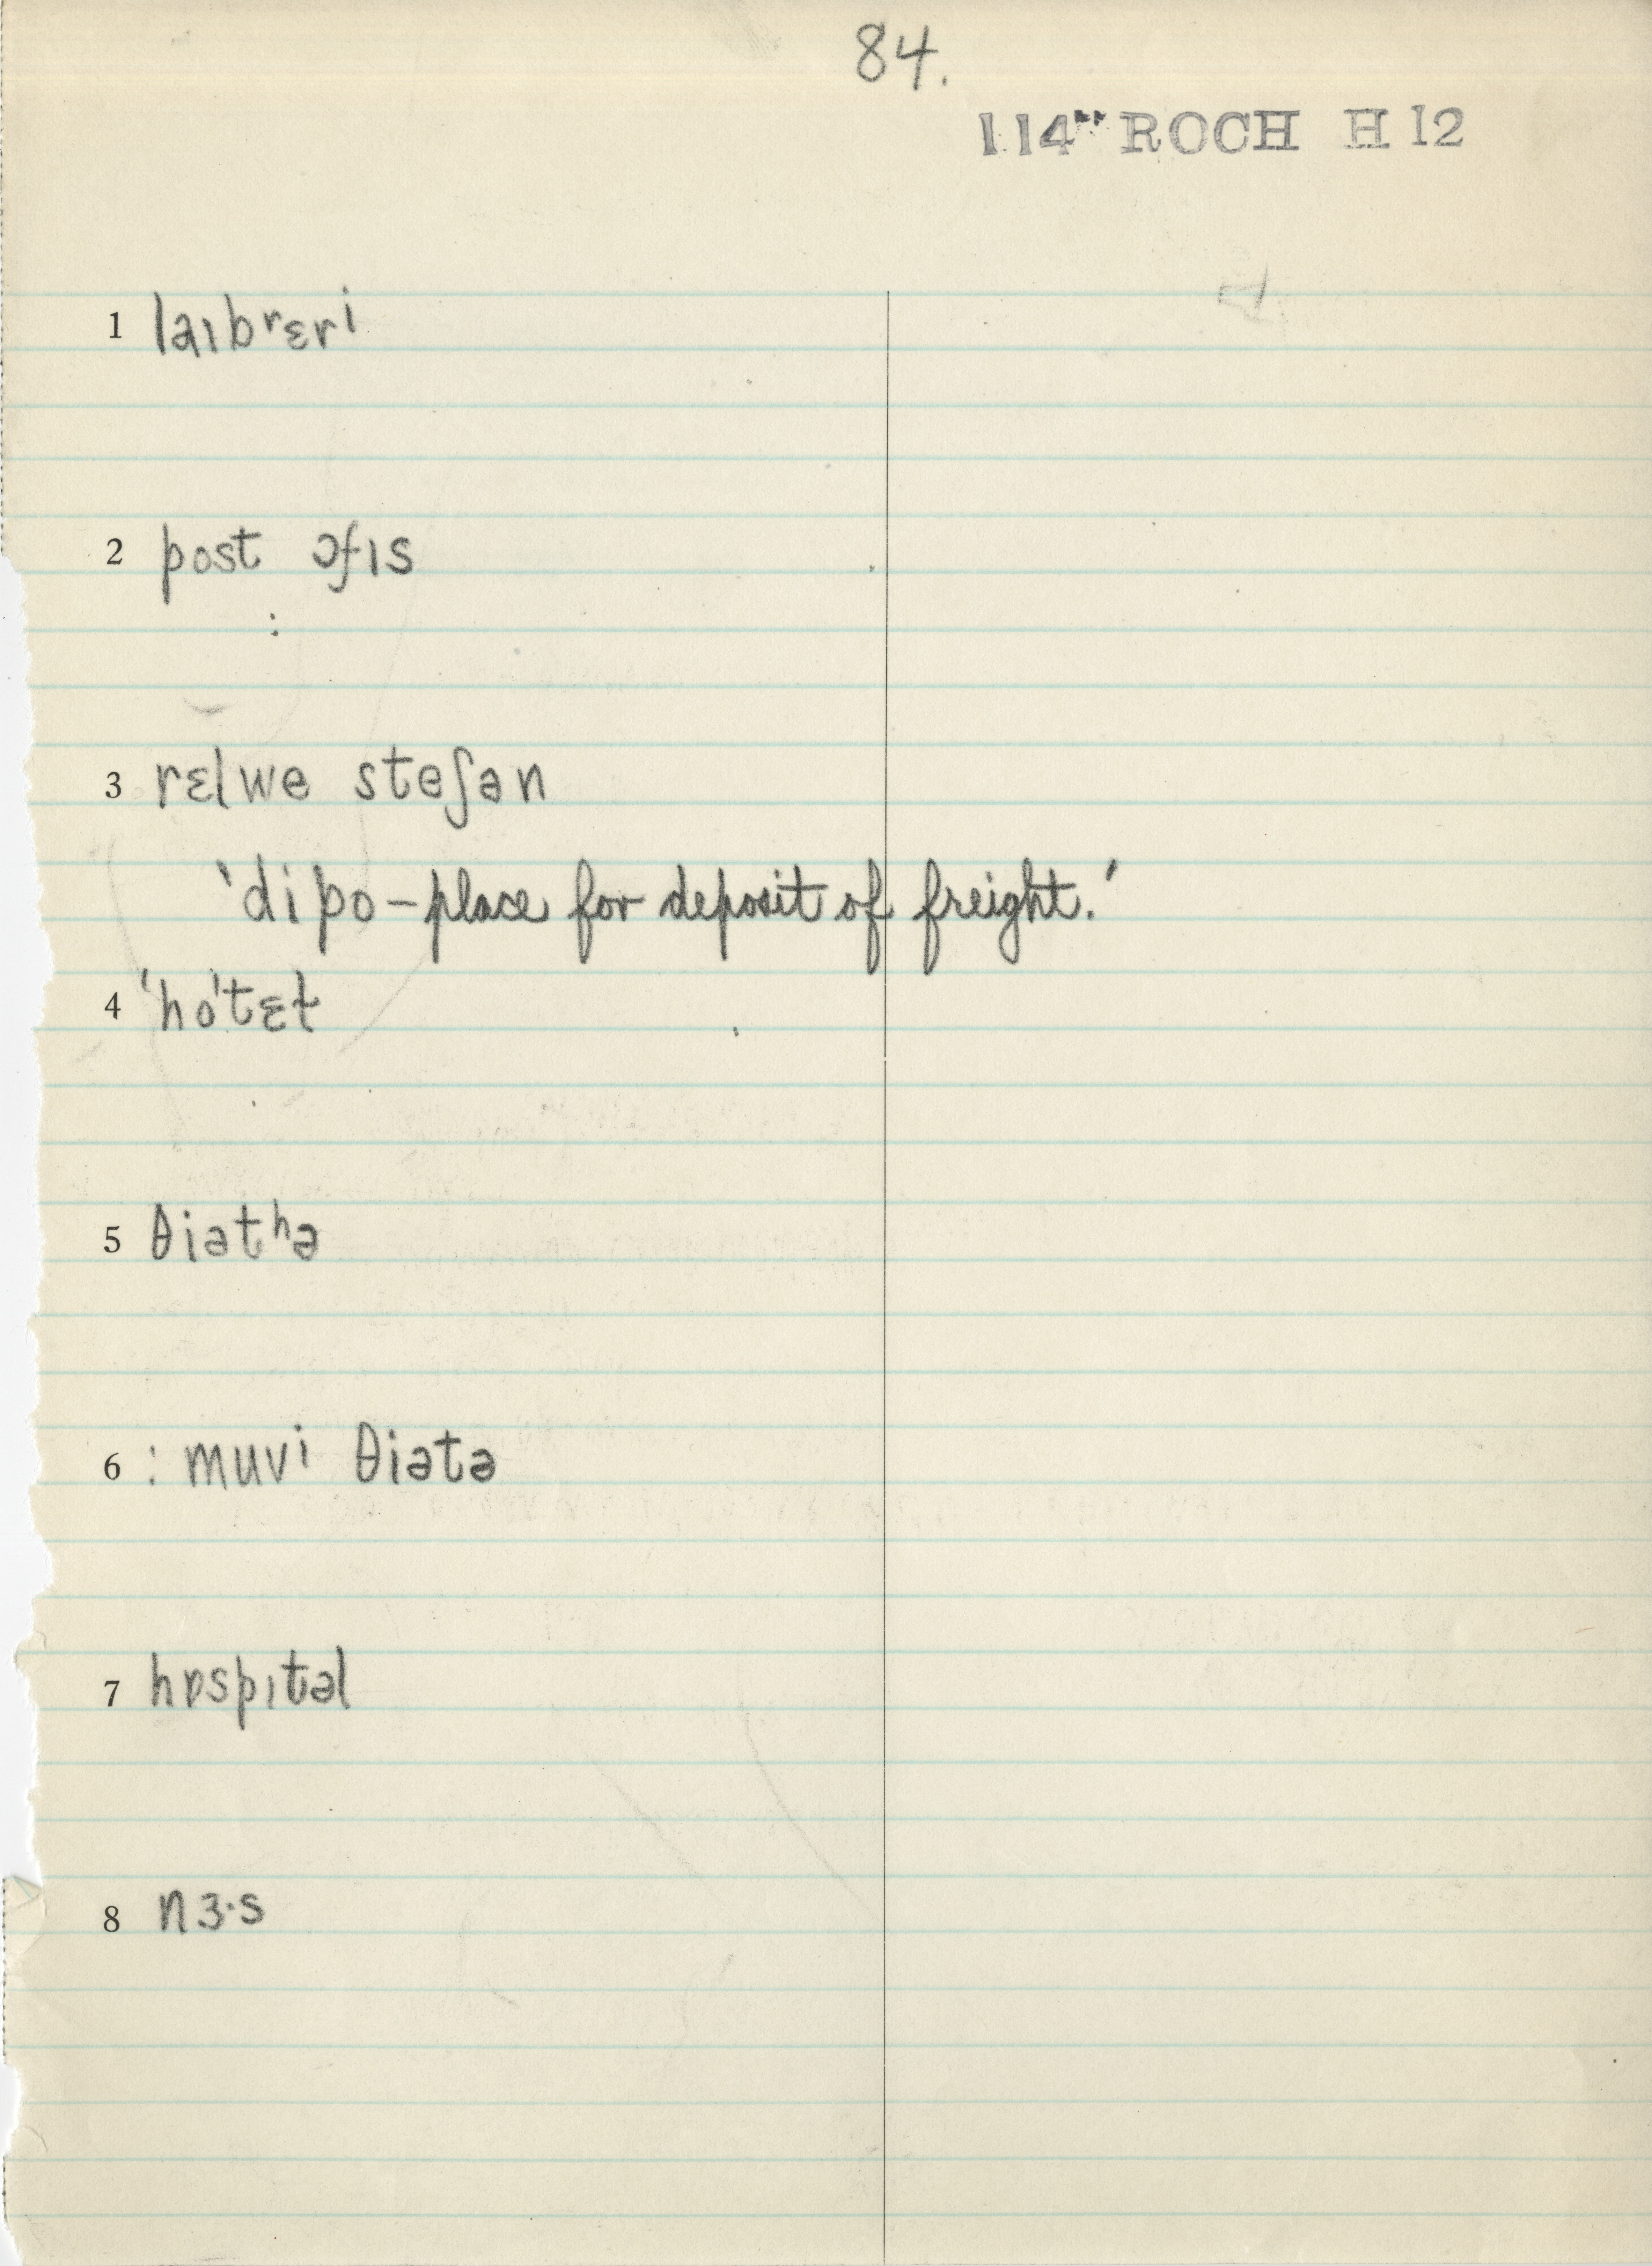 84.
114" ROCH H 12
1 laɪbʳɛri
2 post ɔfɪs
:
3 rɛlwe steʃən
'dipo – place for deposit of freight.'
4 'ho'tɛɫ
5 θiətʰə
6 : muvi θiətə
7 hɒspɪtəl
8 nɜ·s